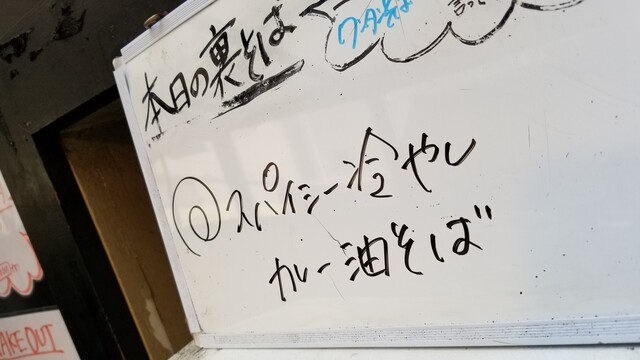 本日の裏そば
ワタそば
言って
@スパイシー冷やし
カレー油そば
AKE OUT